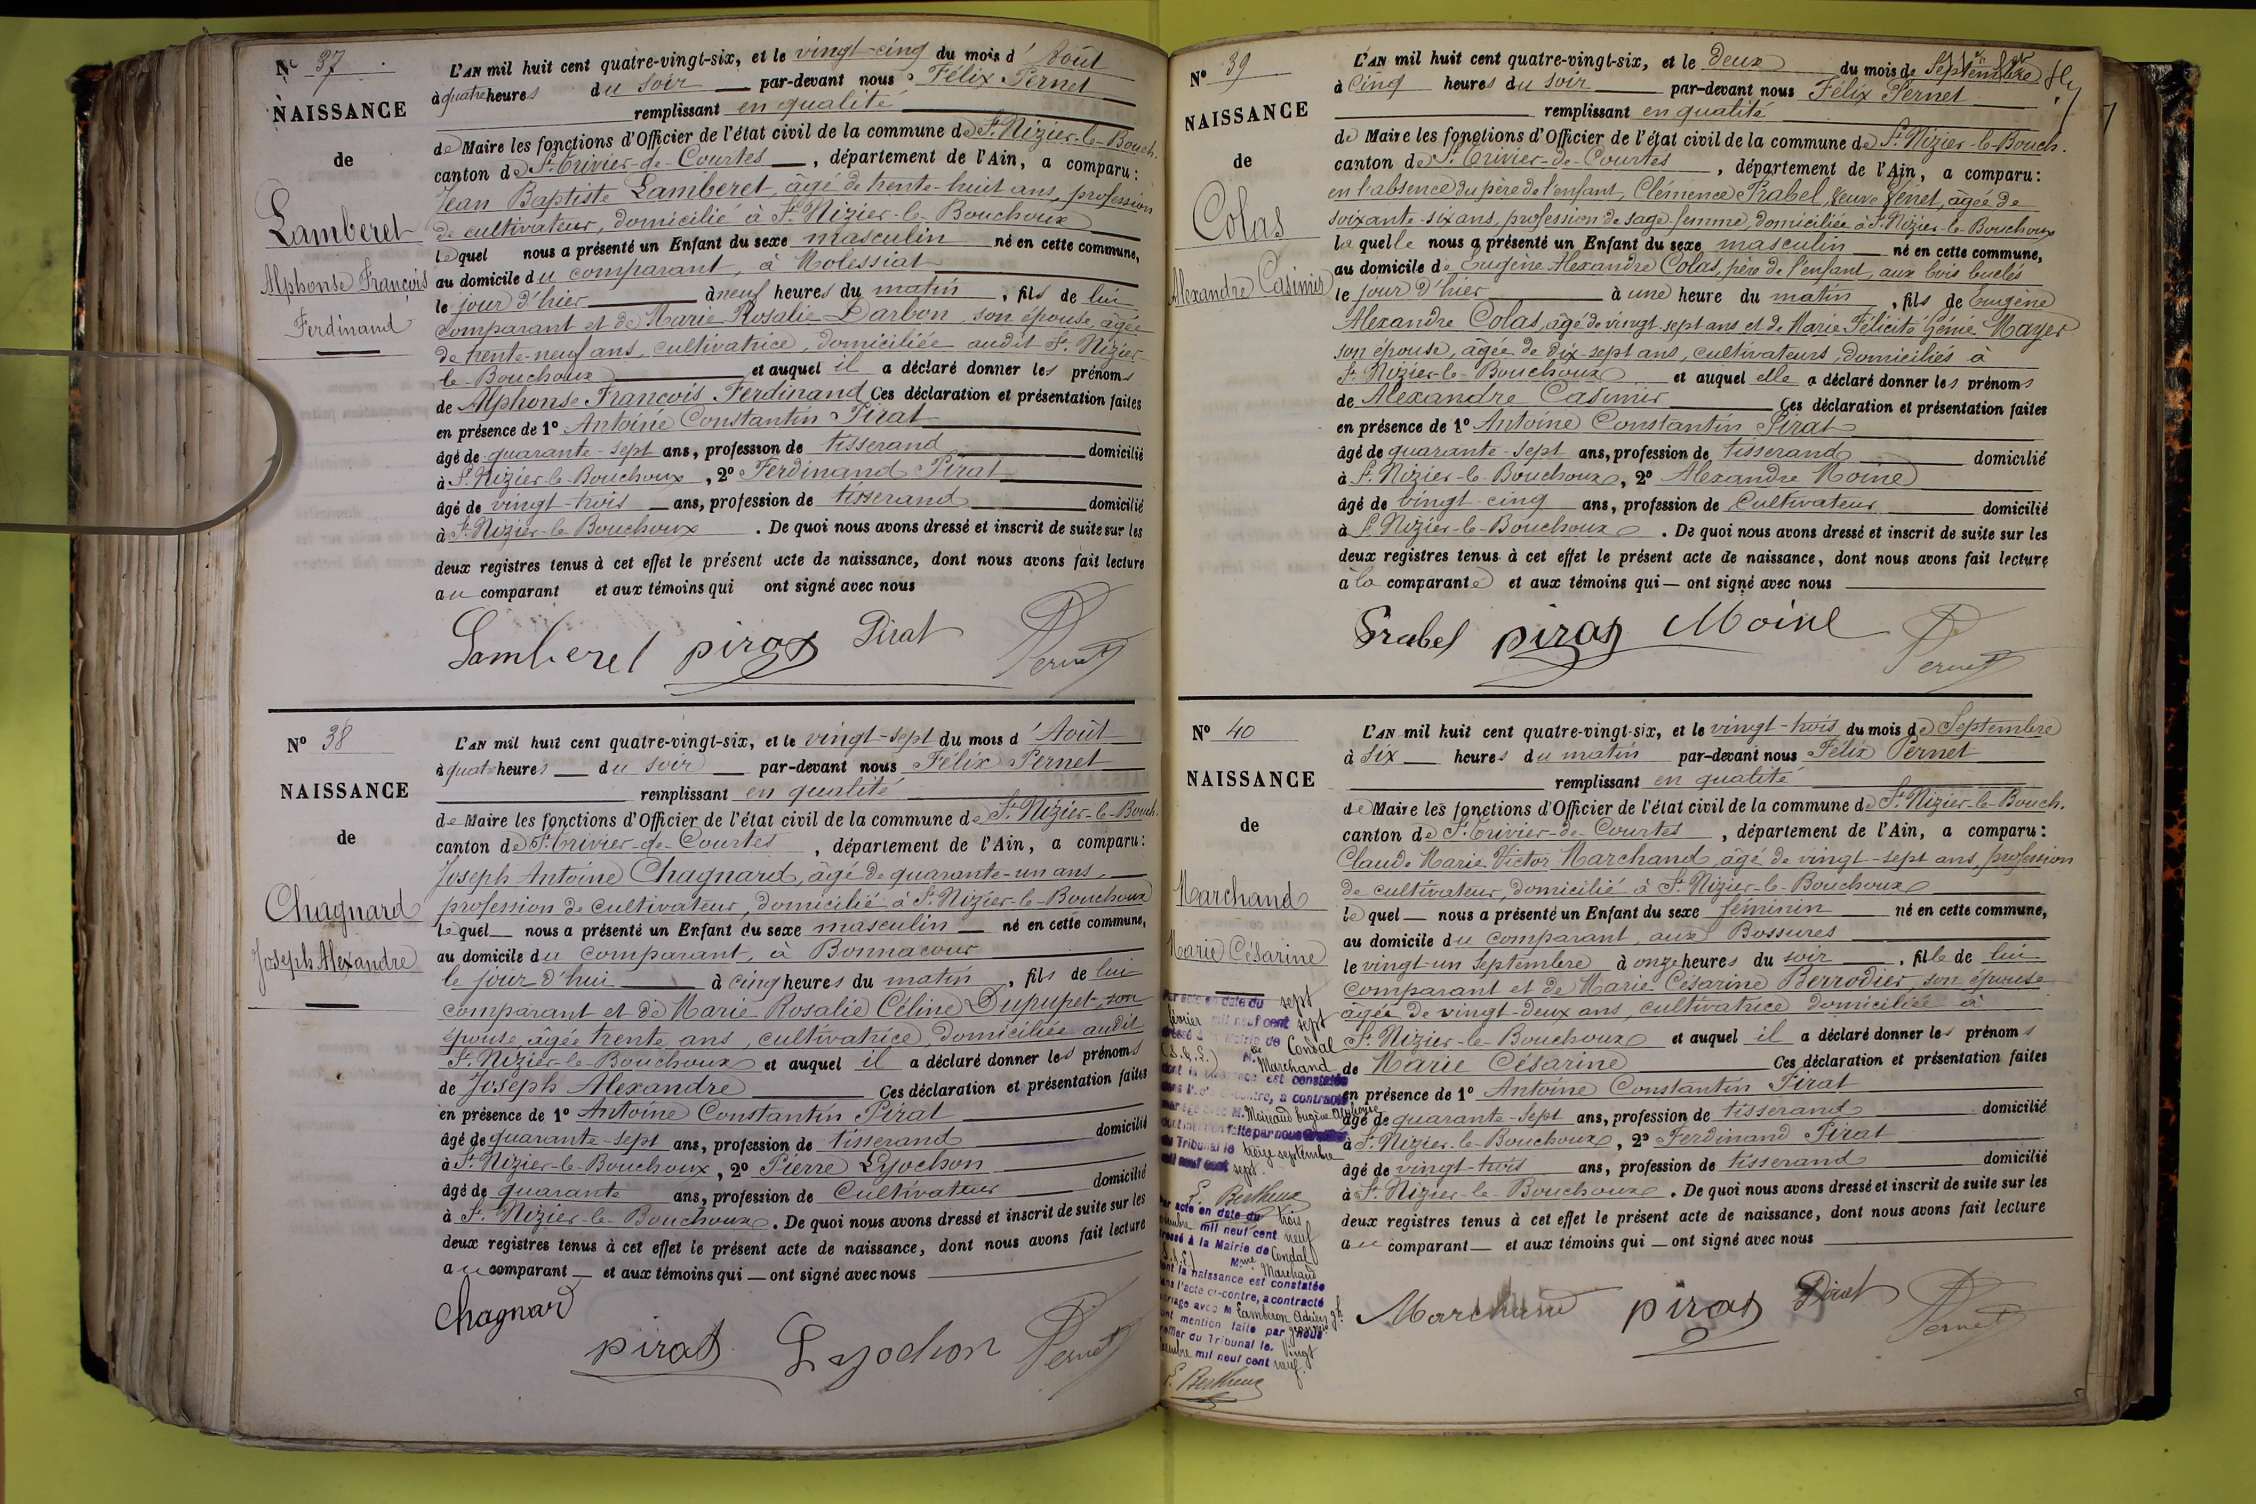 N° 37
NAISSANCE
de
Lamberet
Alphonse François
Ferdinand
L'AN mil huit cent quatre-vingt-six, et le vingt-cinq du mois d'Août
à quatre heures du soir par-devant nous Félix Pernet
remplissant en qualité
de Maire les fonctions d'Officier de l'état civil de la commune de St Nizier-le-Bouch.
canton de St Trivier-de-Courtes, département de l'Ain, a comparu:
Jean Baptiste Lamberet, âgé de trente-huit ans, profession
de cultivateur, domicilié à St Nizier-le-Bouchoux
lequel nous a présenté un Enfant du sexe masculin né en cette commune,
au domicile du comparant, à Molessiat
le jour d'hier à neuf heures du matin, fils de lui
comparant et de Marie Rosalie Darbon son épouse, âgée
de trente-neuf ans, cultivatrice, domiciliée audit St Nizier-
le-Bouchoux et auquel il a déclaré donner les prénoms
de Alphonse François Ferdinand Ces déclaration et présentation faites
en présence de 1° Antoine Constantin Pirat
âgé de quarante-sept ans, profession de tisserand domicilié
à St Nizier-le-Bouchoux, 2° Ferdinand Pirat
âgé de vingt-trois ans, profession de tisserand domicilié
à St Nizier-le-Bouchoux. De quoi nous avons dressé et inscrit de suite sur les
deux registres tenus à cet effet le présent acte de naissance, dont nous avons fait lecture
au comparant et aux témoins qui ont signé avec nous
Lamberet pirat Pirat Pernet
N° 38
NAISSANCE
de
Chagnard
Joseph Alexandre
L'AN mil huit cent quatre-vingt-six, et le vingt-sept du mois d'Août
à quatre heures du soir par-devant nous Félix Pernet
remplissant en qualité
de Maire les fonctions d'Officier de l'état civil de la commune de St Nizier-le-Bouch.
canton de St Trivier-de-Courtes, département de l'Ain, a comparu:
Joseph Antoine Chagnard, âgé de quarante-un ans,
profession de cultivateur, domicilié à St Nizier-le-Bouchoux
lequel nous a présenté un Enfant du sexe masculin né en cette commune,
au domicile du comparant, à Bonnacour
le jour d'hui à cinq heures du matin, fils de lui
comparant et de Marie Rosalie Céline Dupupet, son
épouse, âgée trente ans, cultivatrice, domiciliée audit
St Nizier-le-Bouchoux et auquel il a déclaré donner les prénoms
de Joseph Alexandre Ces déclaration et présentation faites
en présence de 1° Antoine Constantin Pirat
âgé de quarante-sept ans, profession de tisserand domicilié
à St Nizier-le-Bouchoux, 2° Pierre Lyochon
âgé de quarante ans, profession de Cultivateur domicilié
à St Nizier-le-Bouchoux. De quoi nous avons dressé et inscrit de suite sur les
deux registres tenus à cet effet le présent acte de naissance, dont nous avons fait lecture
au comparant et aux témoins qui ont signé avec nous
Chagnard
pirat Lyochon Pernet
N° 39
NAISSANCE
de
Colas
Alexandre Casimir
L'AN mil huit cent quatre-vingt-six, et le Deux du mois de Septembre
à Cinq heures du soir par-devant nous Félix Pernet
remplissant en qualité
de Maire les fonctions d'Officier de l'état civil de la commune de St Nizier-le-Bouch.
canton de St Trivier-de-Courtes, département de l'Ain, a comparu:
en l'absence du père de l'enfant, Clémence Prabel, veuve Génet, âgée de
soixante-six ans, profession de sage-femme, domiciliée à St Nizier-le-Bouchoux
laquelle nous a présenté un Enfant du sexe masculin né en cette commune,
au domicile de Eugène Alexandre Colas, père de l'enfant, aux bois buclés
le jour d'hier à une heure du matin, fils de Eugène
Alexandre Colas, âgé de vingt-sept ans et de Marie Félicité Génie Mayer
son épouse, âgée de dix-sept ans, cultivateurs, domiciliés à
St Nizier-le-Bouchoux et auquel elle a déclaré donner les prénoms
de Alexandre Casimir Ces déclaration et présentation faites
en présence de 1° Antoine Constantin Pirat
âgé de quarante-sept ans, profession de tisserand domicilié
à St Nizier-le-Bouchoux, 2° Alexandre Moine
âgé de vingt-cinq ans, profession de Cultivateur domicilié
à St Nizier-le-Bouchoux. De quoi nous avons dressé et inscrit de suite sur les
deux registres tenus à cet effet le présent acte de naissance, dont nous avons fait lecture
à la comparante et aux témoins qui ont signé avec nous
Prabel pirat Moine Pernet
N° 40
NAISSANCE
de
Marchand
Marie Césarine
Par acte en date du sept
février mil neuf cent sept
dressé à la Mairie de Condal
(S.&L.) Mlle Marchand
dont la naissance est constatée
dans l'acte ci-contre, a contracté
mariage avec M. Moinaud Eugène Alphonse
dont mention faite par nous
du Tribunal le treize septembre
mil neuf cent sept.
E. Bertheux
Par acte en date du trois
mil neuf cent neuf
dressé à la Mairie de Condal
(S.&L.) Mme Marchand
dont la naissance est constatée
dans l'acte ci-contre, a contracté
mariage avec M Lamberon Adrien
dont mention faite par nous
greffier du Tribunal le Vingt
mil neuf cent neuf.
E. Bertheux
L'AN mil huit cent quatre-vingt-six, et le vingt-trois du mois de Septembre
à six heures du matin par-devant nous Félix Pernet
remplissant en qualité
de Maire les fonctions d'Officier de l'état civil de la commune de St Nizier-le-Bouch.
canton de St Trivier-de-Courtes, département de l'Ain, a comparu:
Claude Marie Victor Marchand, âgé de vingt-sept ans, profession
de cultivateur, domicilié à St Nizier-le-Bouchoux
lequel nous a présenté un Enfant du sexe féminin né en cette commune,
au domicile du comparant, aux Bossures
le vingt-un Septembre à onze heures du soir, fille de lui
comparant et de Marie Césarine Berrodier, son épouse
âgée de vingt-deux ans, cultivatrice domiciliée à
St Nizier-le-Bouchoux et auquel il a déclaré donner les prénoms
de Marie Césarine Ces déclaration et présentation faites
en présence de 1° Antoine Constantin Pirat
âgé de quarante-sept ans, profession de tisserand domicilié
à St Nizier-le-Bouchoux, 2° Ferdinand Pirat
âgé de vingt-trois ans, profession de tisserand domicilié
à St Nizier-le-Bouchoux. De quoi nous avons dressé et inscrit de suite sur les
deux registres tenus à cet effet le présent acte de naissance, dont nous avons fait lecture
au comparant et aux témoins qui ont signé avec nous
Marchand pirat Pirat Pernet